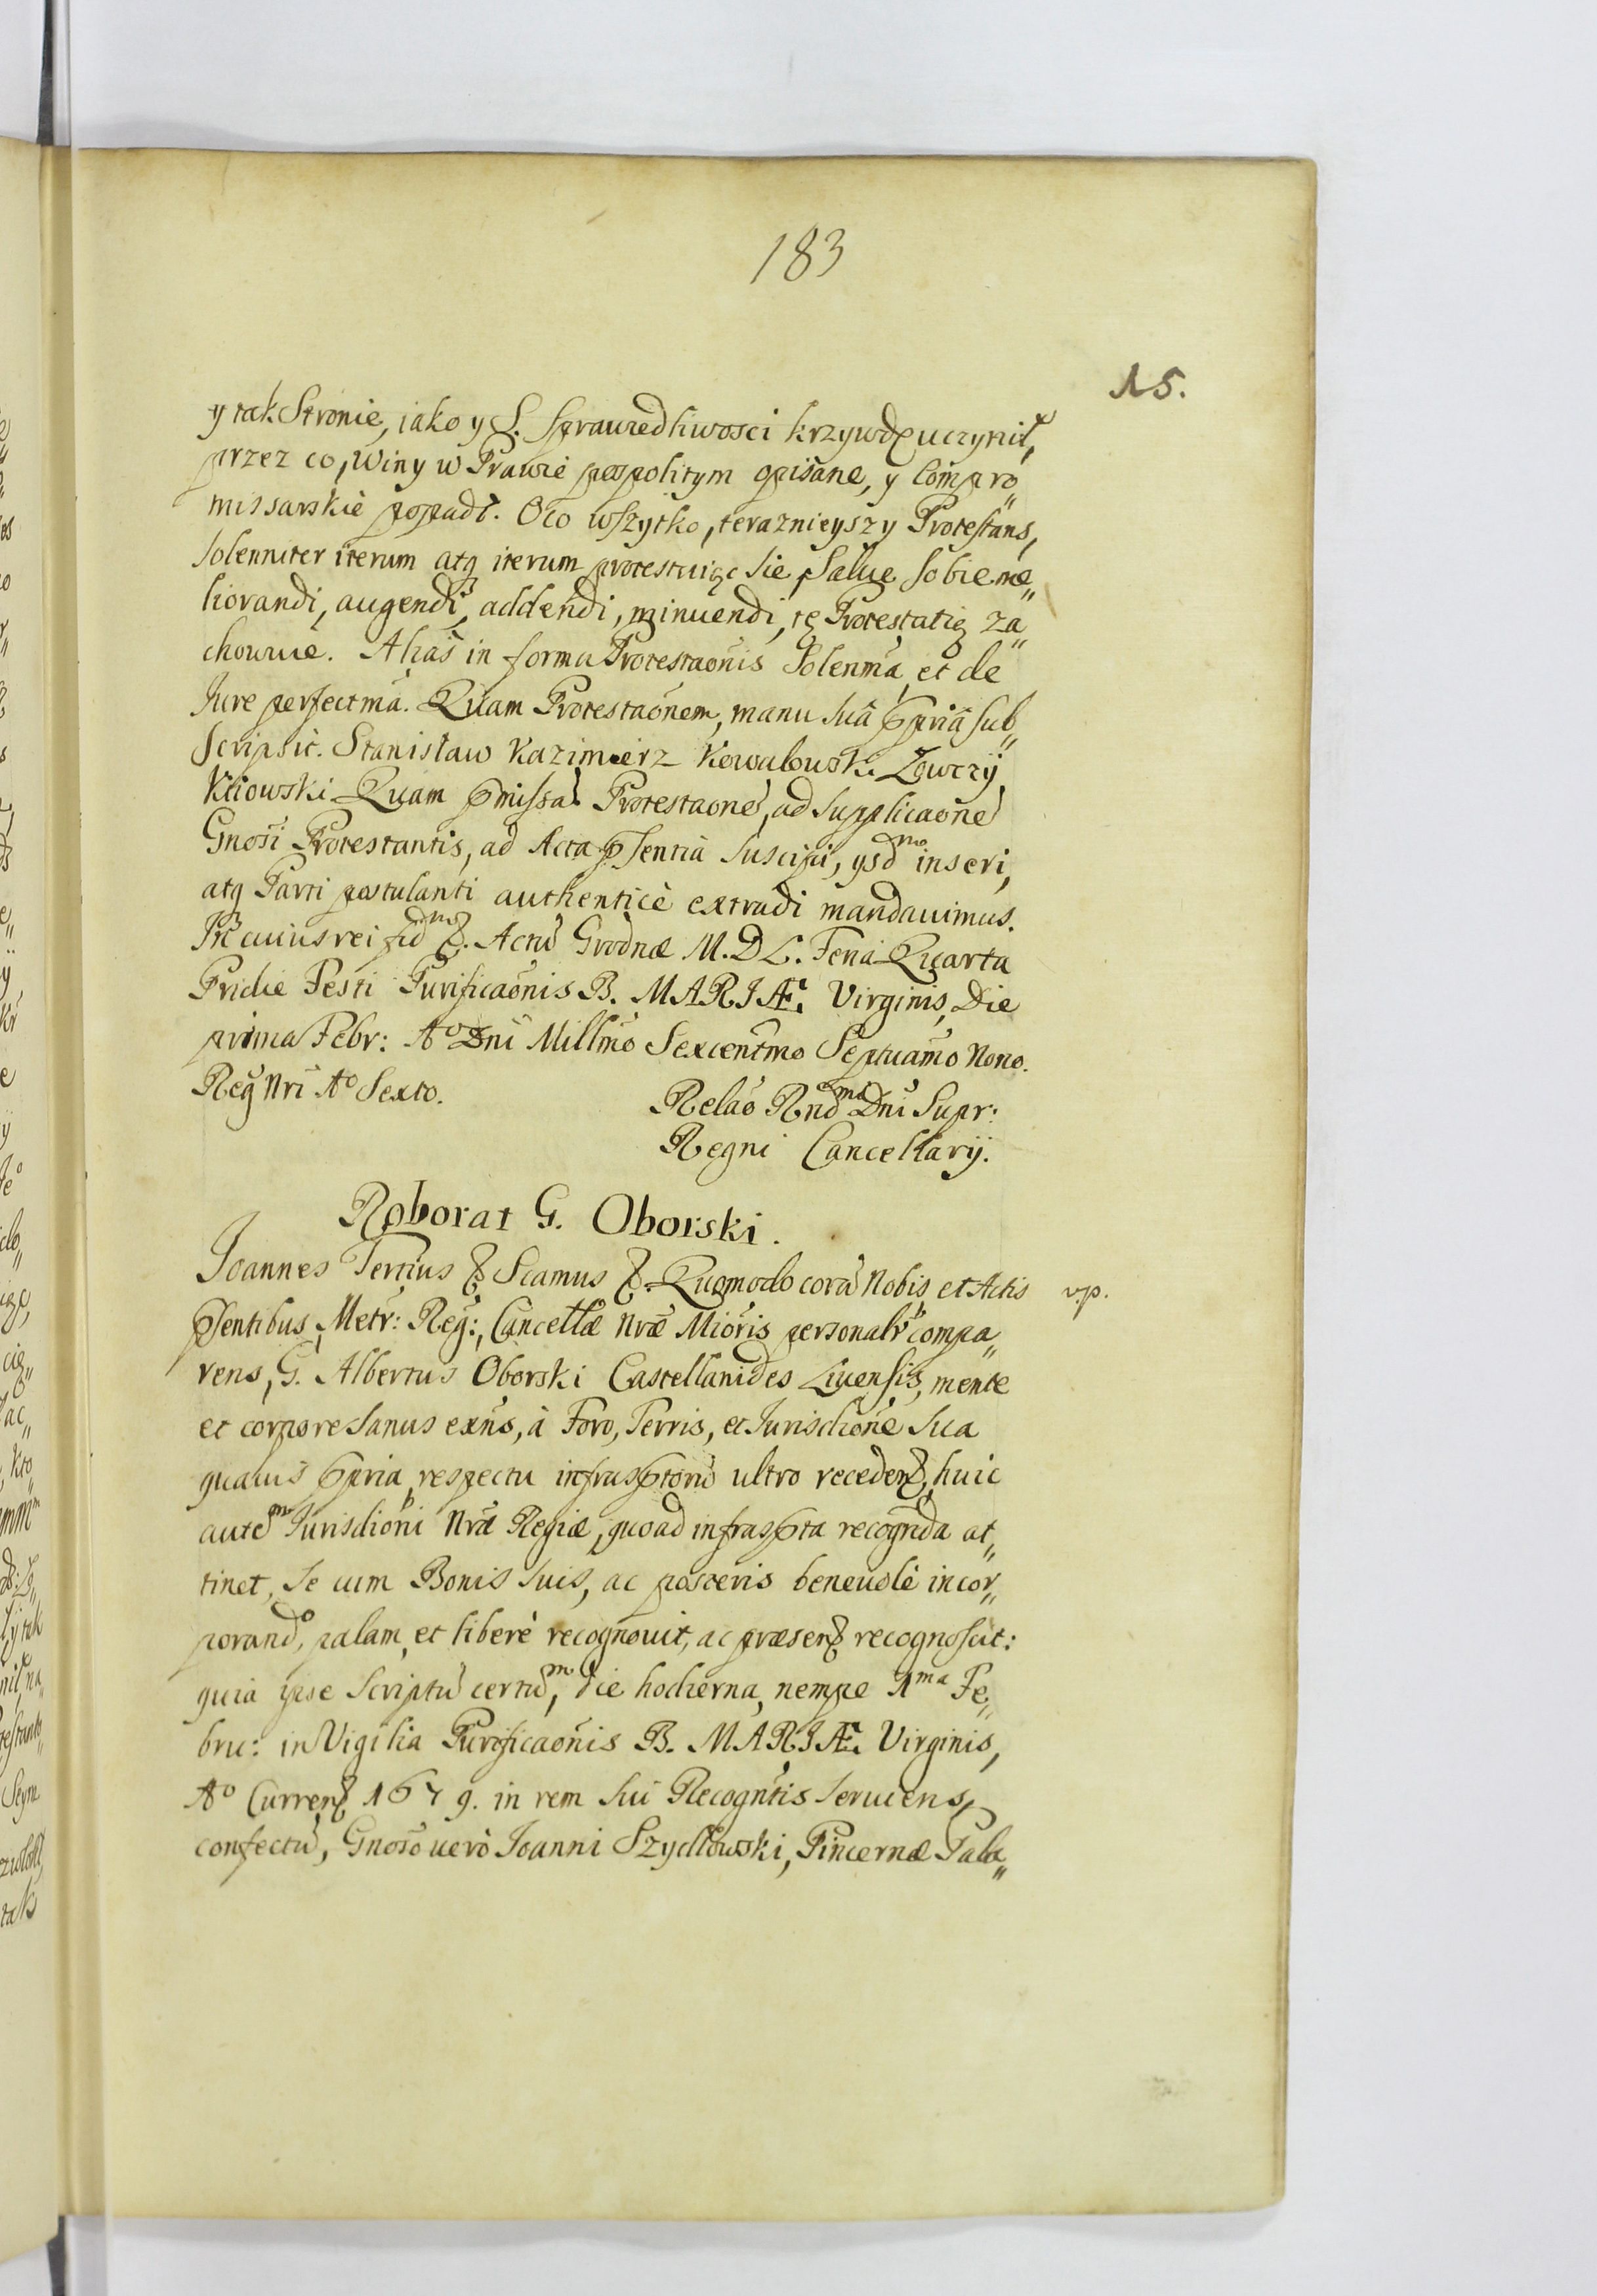 183
15.
y tak Stronie, iako y S. Sprawiedliwosci krzywdę uczynił,
przez co, Winy w Prawie pospolitym opisane, y Compro„
missarskie popadł. Oto wszytko, teraznieyszy Protestans,
solenniter iterum atq iterum protestuiąc sie, Salvę sobie me„
liorandi, augendi, addendi, minuendi, tę Protestatią za„
chowuie. Aliàs in forma Protestaoñis Solenmã, et de
Jure perfectmã. Quam Protestaõnem, manu suâ ppriâ sub„
scripsit. Stanisław Kazimierz Kowalowski Łowczy
Kiiowski. Quam pmissã Protestaone, ad supplicaõne
Gnosi Protestantis, ad Acta psentia suscipi, ysdmo inseri,
atq Parti postulanti authenticè extradi mandavimus.
In cuius rei fidm &. Actu Grodnæ M.D.L. Feria Quarta
Pridie Festi Purificaõnis B. MARIÆ Virginis, Die
prima Febr: Ao Dni Millmo Sexcentmo Septuamo Nono.
Reg Nri Ao Sexto.
Relaõ Rndmi Dni Supr:
Regni Cancellarij.
Roborat G. Oborski.
Joannes Tertius & Scamus & Quomodo corã Nobis et Actis
v.p.
psentibus, Metr: Reg:, Cancellæ Nræ Mioris personalr compa„
rens, G. Albertus Oborski Castellanides Livensis, mente
et corpore sanus exñs, à Foro, Terris, et Jurisdione sua
quavis ppria, respectu infrasptorũ ultro receden&, huic
autem Jurisdioni Nræ Regiæ, quoad infraspta recognda at„
tinet, se cum Bonis suis, ac posteris benevolè incor„
porando, palam et liberè recognovit, ac præsen& recognoscit:
quia ipse Scriptũ certum, die hodierna, nempe 1ma Fe„
bru: in Vigilia Purificaõnis B. MARIÆ Virginis,
Ao Curren& 1679. in rem sui Recogntis serviens,
confectũ, Gnoso verò Joanni Szydłowski, Pincernæ Pala„